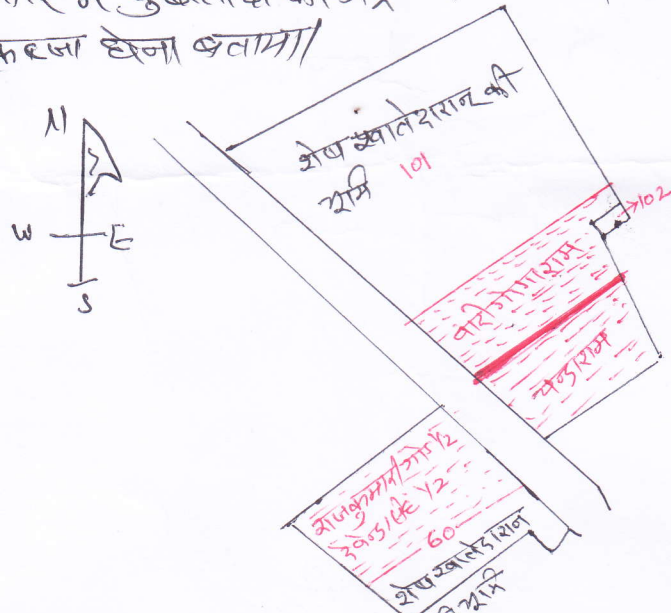 कब्जा होना बताया।
N
W E
S
शेष खातेदारान की
भूमि 101
102
वादी गोगाराम
चन्डाराम
राजकुमारी 1/2
1/2
60
शेष खातेदारान
की भूमि